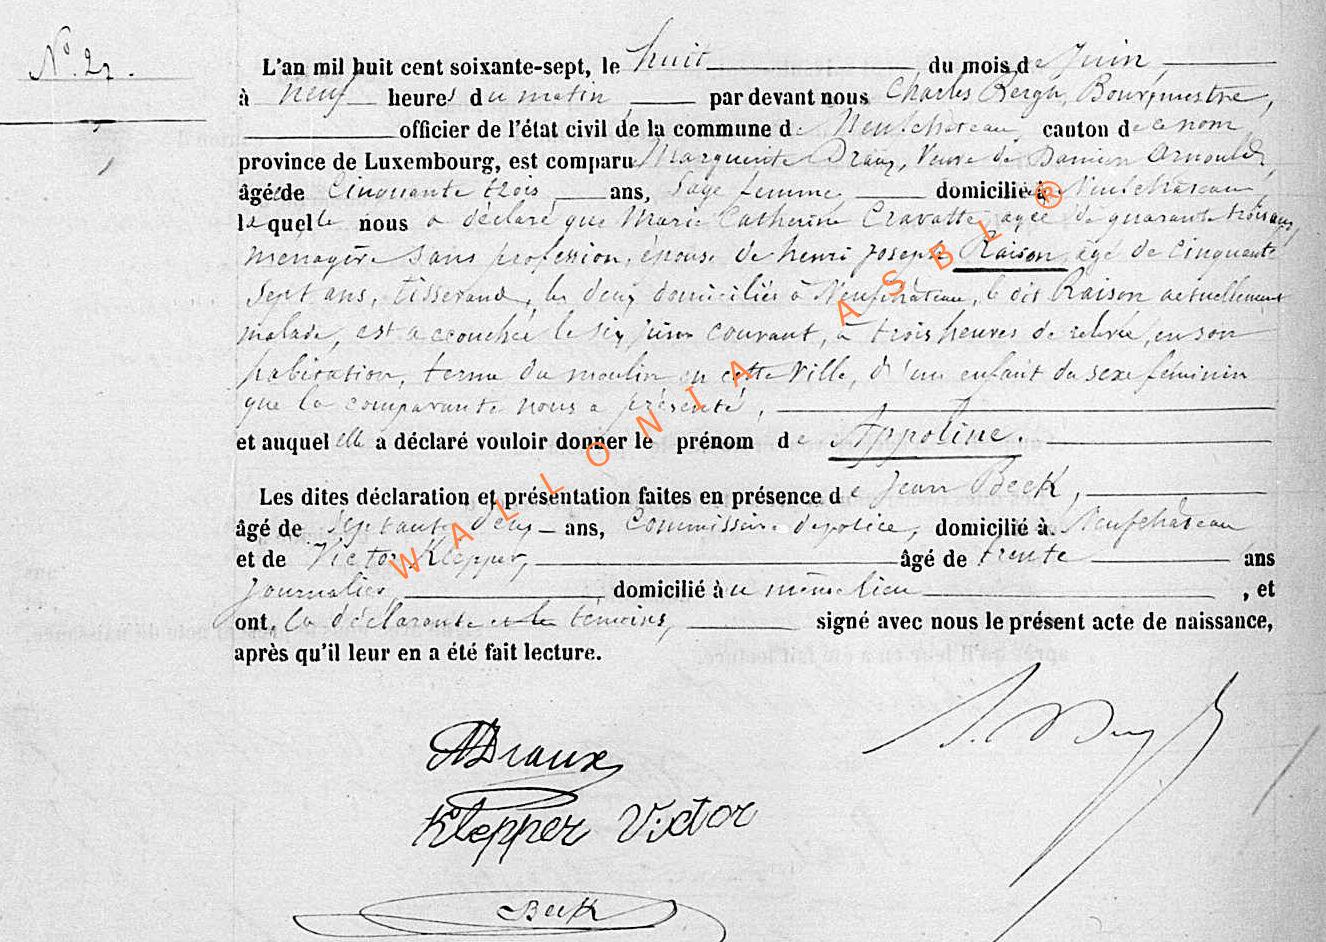 No. 27.
L'an mil huit cent soixante-sept, le huit du mois de Juin
à neuf heures du matin par devant nous Charles Bergh, Bourgmestre,
officier de l'état civil de la commune de Neufchâteau canton de ce nom
province de Luxembourg, est comparu Marguerite Draux, Veuve de Damien Arnould,
âgée de Cinquante trois ans, Sage femme, domiciliée à Neufchâteau,
laquelle nous a déclaré que Marie Catherine Cravatte agée de quarante trois ans,
menagère sans profession, épouse de henri joseph Raison, agé de Cinquante
Sept ans, tisserand, les deux domiciliés à Neufchâteau, le dit Raison actuellement
malade, est accouchée le six juin courant, à trois heures de relevée, en son
habitation, terme du moulin en cette Ville, d'un enfant du sexe féminin
que la comparante nous a présenté,
et auquel elle a déclaré vouloir donner le prénom de Appoline.
Les dites déclaration et présentation faites en présence de Jean Beck,
âgé de Septante deux ans, Commissaire de police, domicilié à Neufchâteau
et de Victor Klepper, âgé de trente ans
Journalier, domicilié au même lieu, et
ont, la déclarante et les témoins, signé avec nous le présent acte de naissance,
après qu'il leur en a été fait lecture.
Draux
Klepper Victor
Beck
WALLONIA ASBL ®